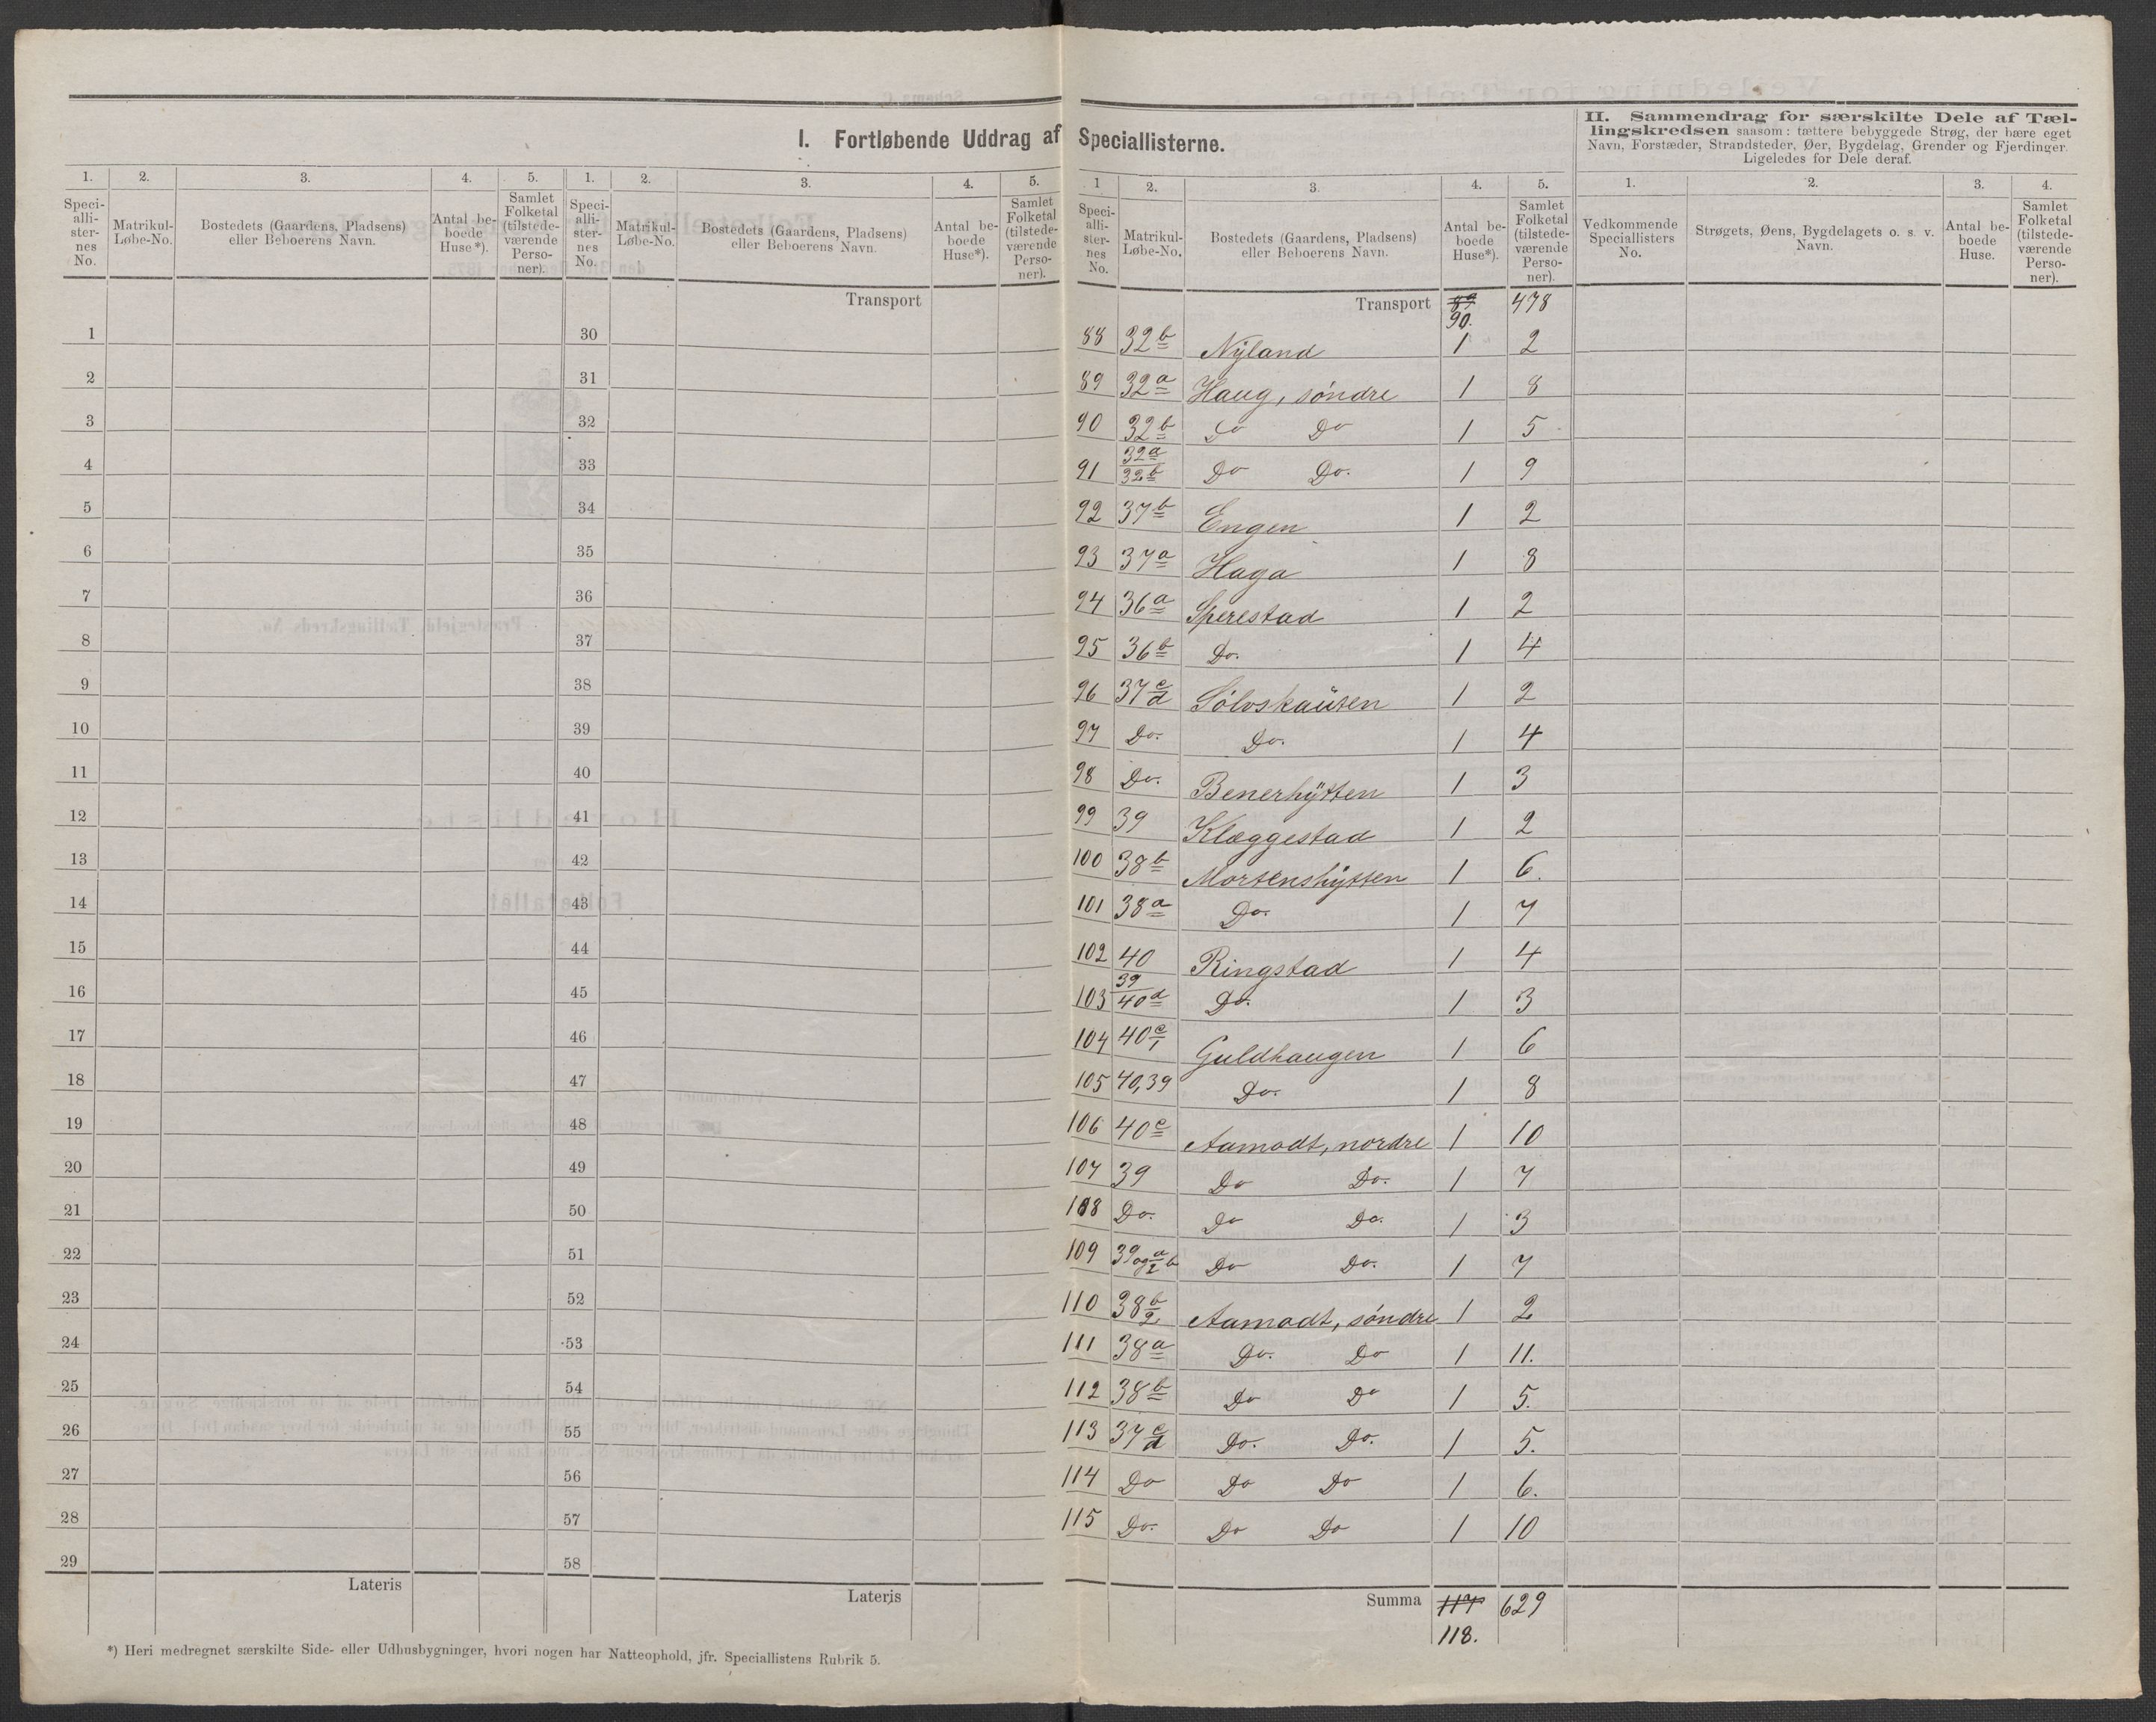 I. Fortløbende Uddrag af Speciallisterne.
II. Sammendrag for særskilte Dele af Tæl-
lingskredsen saasom: tættere bebyggede Strøg, der bære eget
Navn, Forstæder, Strandsteder, Øer, Bygdelag, Grender og Fjerdinger.
Ligeledes for Dele deraf.
1. 2. 3. 4. 5. 1. 2. 3. 4. 5. 1 2. 3. 4. 5. 1. 2. 3. 4.
Speci-
alli-
ster-
nes
No.
Matrikul-
Løbe-No.
Bostedets (Gaardens, Pladsens)
eller Beboerens Navn.
Antal be-
boede
Huse*).
Samlet
Folketal
(tilstede-
værende
Perso-
ner).
Speci-
alli-
ster-
nes
No.
Matrikul-
Løbe-No.
Bostedets (Gaardens, Pladsens)
eller Beboerens Navn.
Antal be-
boede
Huse*).
Samlet
Folketal
(tilstede-
værende
Perso-
ner).
Speci-
alli-
ster-
nes
No.
Matrikul-
Løbe-No.
Bostedets (Gaardens, Pladsens)
eller Beboerens Navn.
Antal be-
boede
Huse*).
Samlet
Folketal
(tilstede-
værende
Perso-
ner).
Vedkommende
Speciallisters
No.
Strøgets, Øens, Bygdelagets o. s. v.
Navn.
Antal be-
boede
Huse.
Samlet
Folketal
(tilstede-
værende
Perso-
ner).
Transport
1 30
2 31
3 32
4 33
5 34
6 35
7 36
8 37
9 38
10 39
11 40
12 41
13 42
14 43
15 44
16 45
17 46
18 47
19 48
20 49
21 50
22 51
23 52
24 53
25 54
26 55
27 56
28 57
29 58
Lateris Lateris
*) Heri medregnet særskilte Side- eller Udhusbygninger, hvori nogen har Natteophold, jfr. Speciallistens Rubrik 5.
Transport 89 478
90.
88 32b Nÿland 1 2
89 32a Haug, søndre 1 8
90 32b Do Do 1 5
91 32a/32b Do Do. 1 9
92 37b Engen 1 2
93 37a Haga 1 8
94 36a Sperestad 1 2
95 36b Do. 1 4
96 37c/d Sølvskaüten 1 2
97 Do. Do. 1 4
98 Do. Benerhÿtten 1 3
99 39 Klæggestad 1 2
100 38b Mortenshÿtten 1 6.
101 38a Do. 1 7
102 40 Ringstad 1 4
103 39/40d Do. 1 3
104 40c/1 Guldhaugen 1 6
105 40,39 Do. 1 8
106 40c Aamodt, nordre 1 10
107 39 Do Do. 1 7
108 Do. Do Do. 1 3
109 39 og a/2 b Do Do. 1 7
110 38b/2 Aamodt, søndre 1 2
111 38a Do. Do 1 11.
112 38b Do Do 1 5.
113 37c/d Do. Do. 1 5.
114 Do Do Do 1 6.
115 Do. Do Do 1 10
Summa 117 629
118.